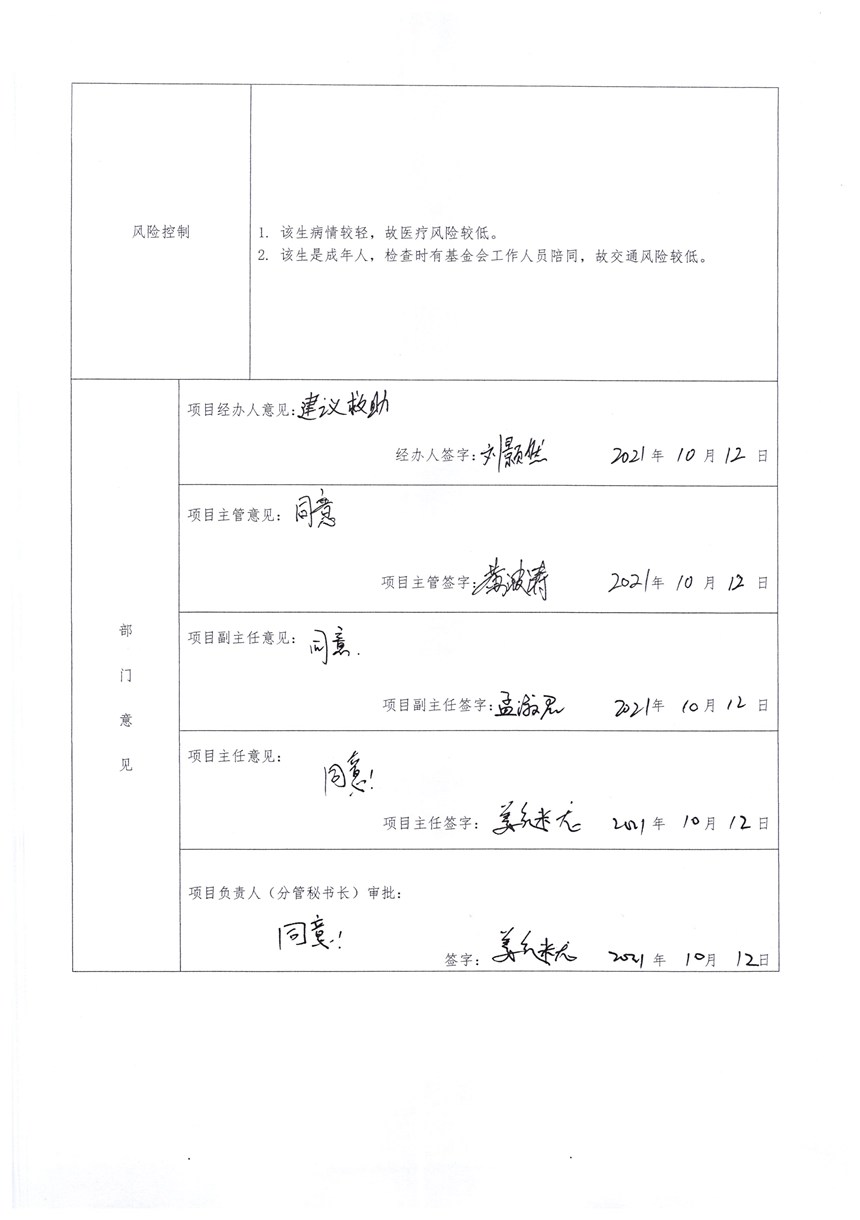 风险控制
1. 该生病情较轻，故医疗风险较低。
2. 该生是成年人，检查时有基金会工作人员陪同，故交通风险较低。
部门意见
项目经办人意见：建议救助
经办人签字：刘颢然 2021年 10月 12日
项目主管意见：同意
项目主管签字：黄波涛 2021年 10月 12日
项目副主任意见：同意.
项目副主任签字：孟 君 2021年 10月 12日
项目主任意见：
同意！
项目主任签字：姜 2021年 10月 12日
项目负责人（分管秘书长）审批：
同意！
签字：姜 2021年 10月 12日